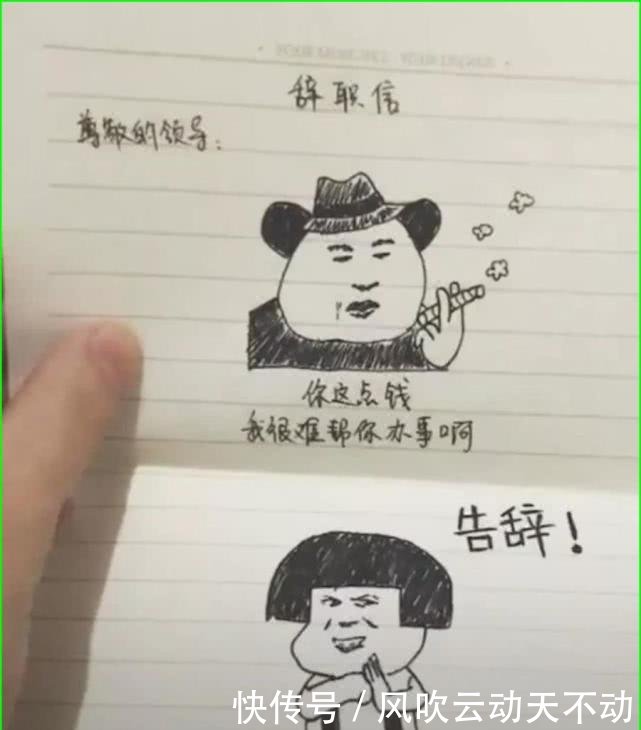 辞职信
尊敬的领导：
你这点钱
我很难帮你办事啊
告辞！
快传号 / 风吹云动天不动